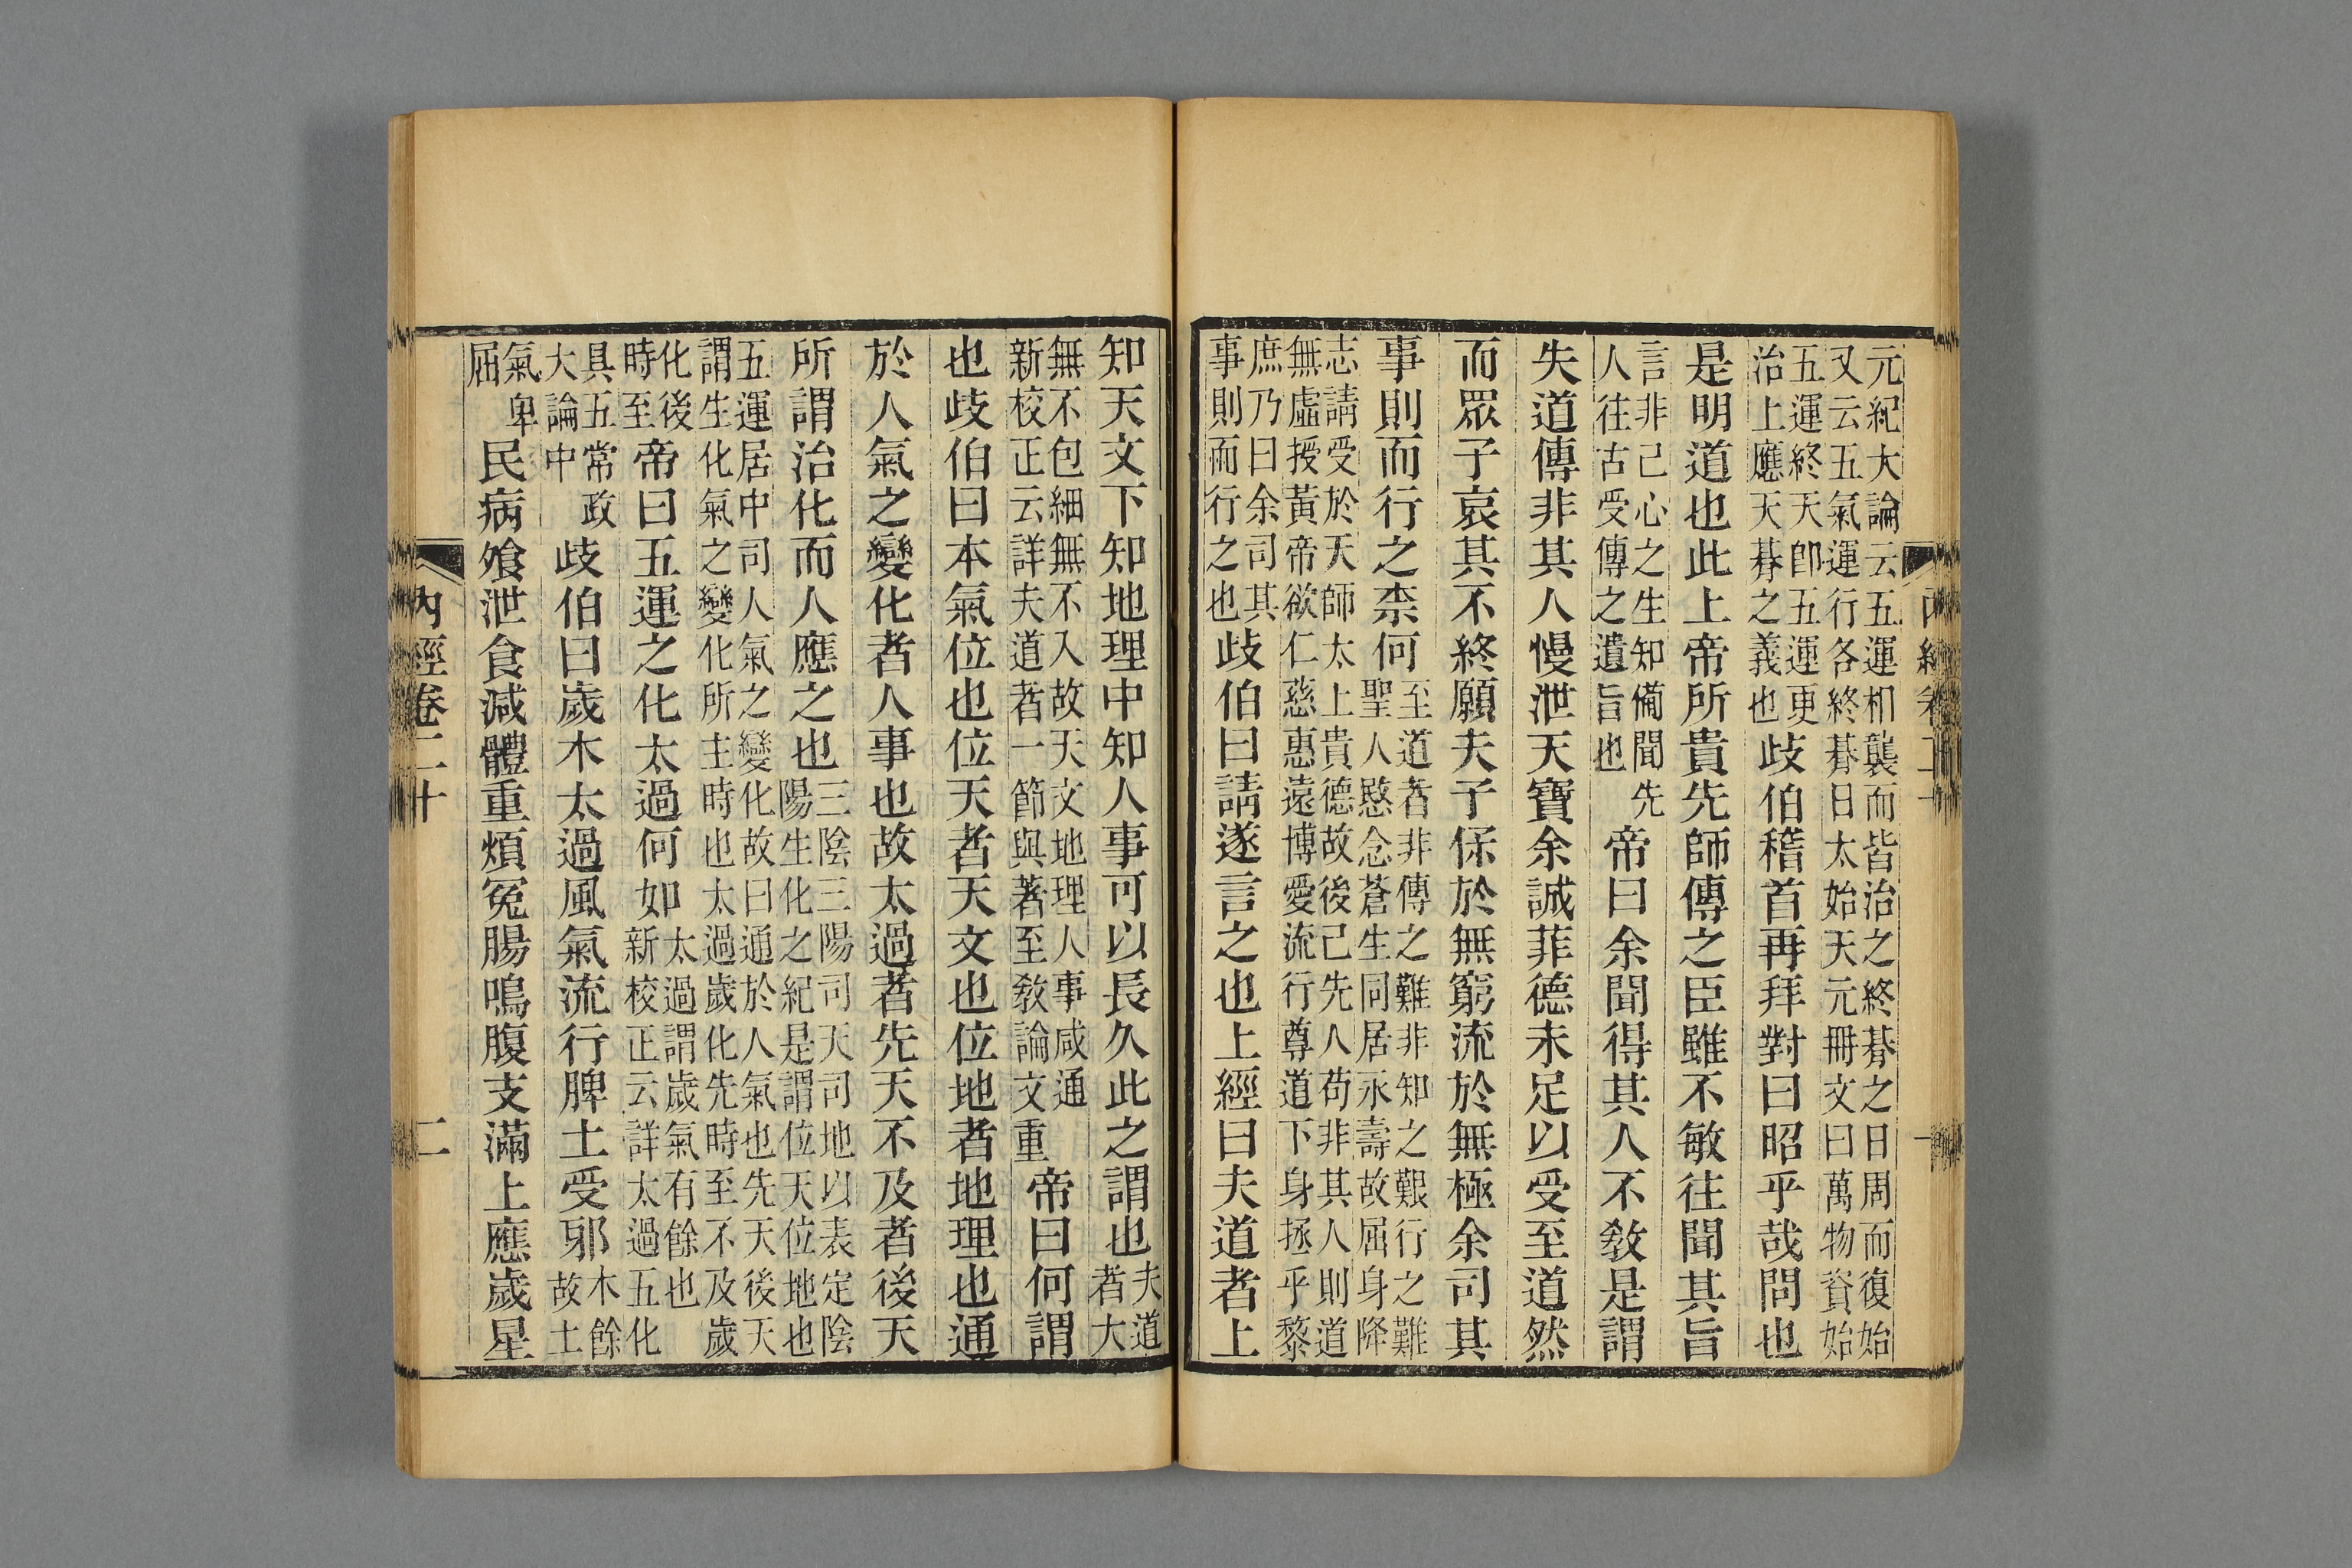 元紀大論云五運相襲而皆治之終朞之日周而復始
又云五氣運行各終朞日太始天元冊文曰萬物資始
五運終天卽五運更治上應天朞之義也歧伯稽首再拜對曰昭乎哉問也
是明道也此上帝所貴先師傳之臣雖不敏往聞其旨
言非己心之生知備聞先人往古受傳之遺旨也帝曰余聞得其人不敎是謂
失道傳非其人慢泄天寶余誠菲德未足以受至道然
而眾子哀其不終願夫子保於無窮流於無極余司其
事則而行之柰何至道者非傳之難非知之艱行之難聖人愍念蒼生同居永壽故屈身降
志請受於天師太上貴德故後己先人苟非其人則道
無虛授黃帝欲仁慈惠遠博愛流行尊道下身拯乎黎
庶乃曰余司其事則而行之也歧伯曰請遂言之也上經曰夫道者上
知天文下知地理中知人事可以長久此之謂也夫道者大
無不包細無不入故天文地理人事咸通新校正云詳夫道者一節與著至敎論文重帝曰何謂
也歧伯曰本氣位也位天者天文也位地者地理也通
於人氣之變化者人事也故太過者先天不及者後天
所謂治化而人應之也三陰三陽司天司地以表定陰陽生化之紀是謂位天位地也
五運居中司人氣之變化故曰通於人氣也先天後天
謂生化氣之變化所主時也太過歲化先時至不及歲
化後時至帝曰五運之化太過何如太過謂歲氣有餘也新校正云詳太過五化
具五常政大論中歧伯曰歲木太過風氣流行脾土受邪木餘故土
氣卑屈民病飧泄食減體重煩冤腸鳴腹支滿上應歲星
內經卷二十
二